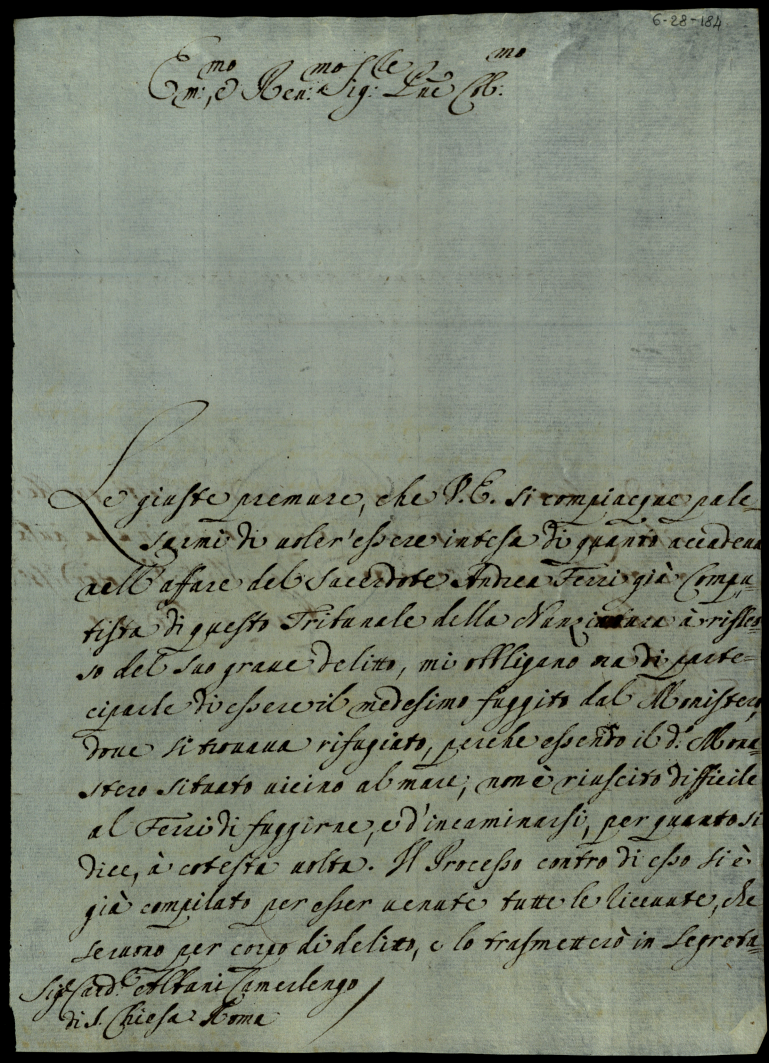 6-28-184
Em:mo, e Reu:mo Sig:re Pne Col:mo
Le giuste premure, che V.E. si compiacque pale
sarmi di uoler'essere intesa di quanto accadeua
nell'affare del Sacerdote Andrea Ferri già Compu
tista di questo Tribunale della Nunziatura à rifles
so del suo graue delitto, mi obligano ora di parte=
ciparle di essere il medesimo fuggito dal Monistero,
doue si trouaua rifugiato, perche essendo il d.o Mona=
stero situato uicino al mare, non è riuscito difficile
al Ferri di fuggirne, e d'incaminarsi, per quanto si
dice, à cotesta uolta. Il Processo contro di esso si è
già compilato per esser uenute tutte le riceuute, che
seruono per corpo di delitto, e lo trasmetterò in Segreta=
Sig.r Card.le Albani Camerlengo
di S. Chiesa Roma